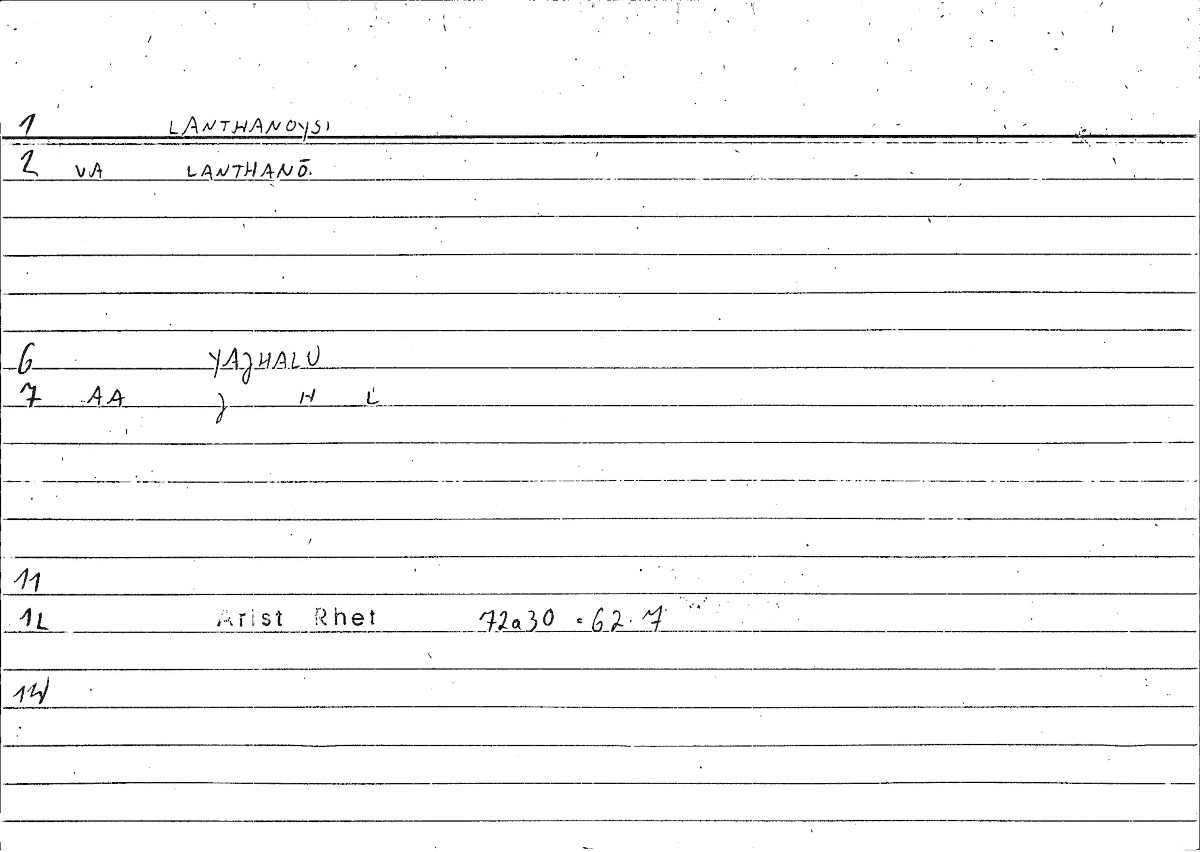 1 LANTHANOYSI
2 VA LANTHANŌ.
6 YAJHALU
7 AA J H L
11
12 Arist Rhet 72a30 = 62.7
14